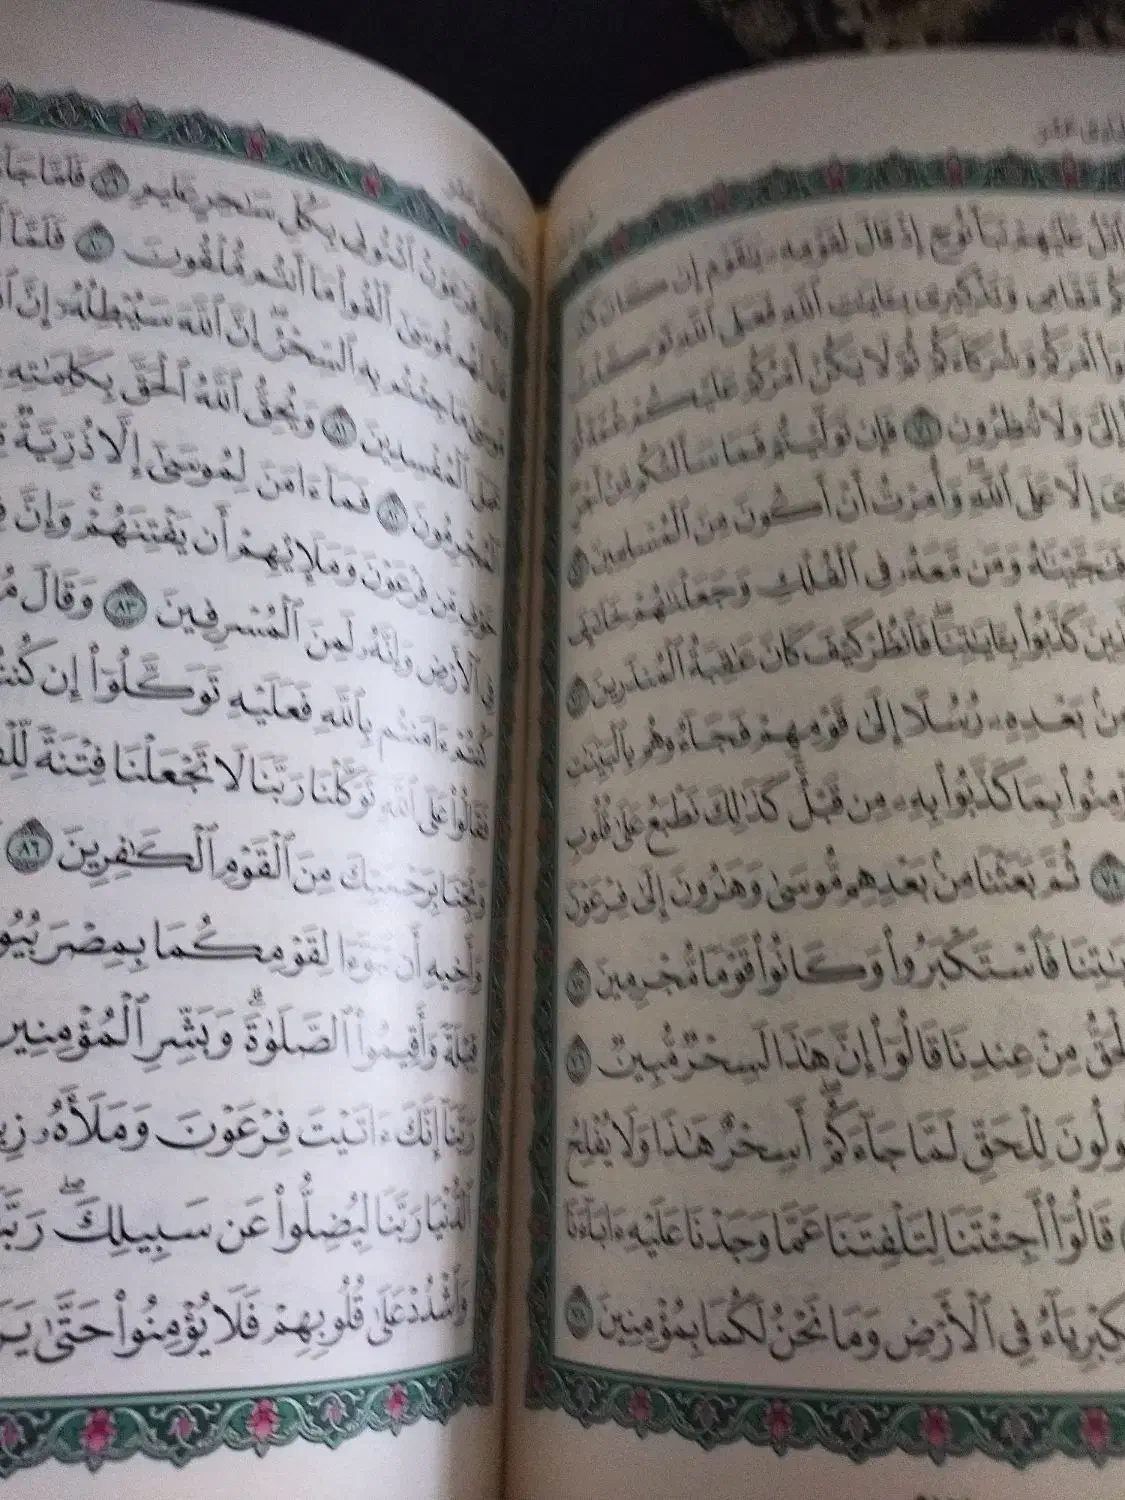 ٱتۡلُ عَلَيۡهِمۡ نَبَأَ نُوحٍ إِذۡ قَالَ لِقَوۡمِهِۦ يَٰقَوۡمِ إِن كَانَ كَبُرَ
مَّقَامِي وَتَذۡكِيرِي بِـَٔايَٰتِ ٱللَّهِ فَعَلَى ٱللَّهِ تَوَكَّلۡتُ
أَمۡرَكُمۡ وَشُرَكَآءَكُمۡ ثُمَّ لَا يَكُنۡ أَمۡرُكُمۡ عَلَيۡكُمۡ غُمَّةٗ ثُمَّ
إِلَيَّ وَلَا تُنظِرُونِ ٧١ فَإِن تَوَلَّيۡتُمۡ فَمَا سَأَلۡتُكُم مِّنۡ أَجۡرٍۖ
إِلَّا عَلَى ٱللَّهِۖ وَأُمِرۡتُ أَنۡ أَكُونَ مِنَ ٱلۡمُسۡلِمِينَ ٧٢
فَنَجَّيۡنَٰهُ وَمَن مَّعَهُۥ فِي ٱلۡفُلۡكِ وَجَعَلۡنَٰهُمۡ خَلَٰٓئِفَ
كَذَّبُواْ بِـَٔايَٰتِنَاۖ فَٱنظُرۡ كَيۡفَ كَانَ عَٰقِبَةُ ٱلۡمُنذَرِينَ ٧٣
مِنۢ بَعۡدِهِۦ رُسُلًا إِلَىٰ قَوۡمِهِمۡ فَجَآءُوهُم بِٱلۡبَيِّنَٰتِ
بِمَا كَذَّبُواْ بِهِۦ مِن قَبۡلُۚ كَذَٰلِكَ نَطۡبَعُ عَلَىٰ قُلُوبِ
٧٤ ثُمَّ بَعَثۡنَا مِنۢ بَعۡدِهِم مُّوسَىٰ وَهَٰرُونَ إِلَىٰ فِرۡعَوۡنَ
فَٱسۡتَكۡبَرُواْ وَكَانُواْ قَوۡمٗا مُّجۡرِمِينَ ٧٥
مِنۡ عِندِنَا قَالُوٓاْ إِنَّ هَٰذَا لَسِحۡرٞ مُّبِينٞ ٧٦
لِلۡحَقِّ لَمَّا جَآءَكُمۡۖ أَسِحۡرٌ هَٰذَا وَلَا يُفۡلِحُ
قَالُوٓاْ أَجِئۡتَنَا لِتَلۡفِتَنَا عَمَّا وَجَدۡنَا عَلَيۡهِ ءَابَآءَنَا
فِي ٱلۡأَرۡضِ وَمَا نَحۡنُ لَكُمَا بِمُؤۡمِنِينَ ٧٨
وَقَالَ فِرۡعَوۡنُ ٱئۡتُونِي بِكُلِّ سَٰحِرٍ عَلِيمٖ ٧٩ فَلَمَّا
قَالَ لَهُم مُّوسَىٰٓ أَلۡقُواْ مَآ أَنتُم مُّلۡقُونَ ٨٠ فَلَمَّآ
مُوسَىٰ مَا جِئۡتُم بِهِ ٱلسِّحۡرُۖ إِنَّ ٱللَّهَ سَيُبۡطِلُهُۥٓ إِنَّ
عَمَلَ ٱلۡمُفۡسِدِينَ ٨١ وَيُحِقُّ ٱللَّهُ ٱلۡحَقَّ بِكَلِمَٰتِهِۦ
ٱلۡمُجۡرِمُونَ ٨٢ فَمَآ ءَامَنَ لِمُوسَىٰٓ إِلَّا ذُرِّيَّةٞ
خَوۡفٖ مِّن فِرۡعَوۡنَ وَمَلَإِيْهِمۡ أَن يَفۡتِنَهُمۡۚ وَإِنَّ
فِي ٱلۡأَرۡضِ وَإِنَّهُۥ لَمِنَ ٱلۡمُسۡرِفِينَ ٨٣ وَقَالَ
كُنتُمۡ ءَامَنتُم بِٱللَّهِ فَعَلَيۡهِ تَوَكَّلُوٓاْ إِن
فَقَالُواْ عَلَى ٱللَّهِ تَوَكَّلۡنَا رَبَّنَا لَا تَجۡعَلۡنَا فِتۡنَةٗ
وَنَجِّنَا بِرَحۡمَتِكَ مِنَ ٱلۡقَوۡمِ ٱلۡكَٰفِرِينَ ٨٦
وَأَخِيهِ أَن تَبَوَّءَا لِقَوۡمِكُمَا بِمِصۡرَ
قِبۡلَةٗ وَأَقِيمُواْ ٱلصَّلَوٰةَۗ وَبَشِّرِ ٱلۡمُؤۡمِنِينَ
رَبَّنَآ إِنَّكَ ءَاتَيۡتَ فِرۡعَوۡنَ وَمَلَأَهُۥ
ٱلدُّنۡيَا رَبَّنَا لِيُضِلُّواْ عَن سَبِيلِكَۖ
وَٱشۡدُدۡ عَلَىٰ قُلُوبِهِمۡ فَلَا يُؤۡمِنُواْ حَتَّىٰ